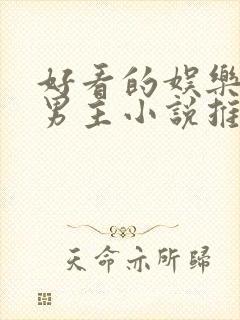 好看的娱樂
男主小說推
天命亦所歸